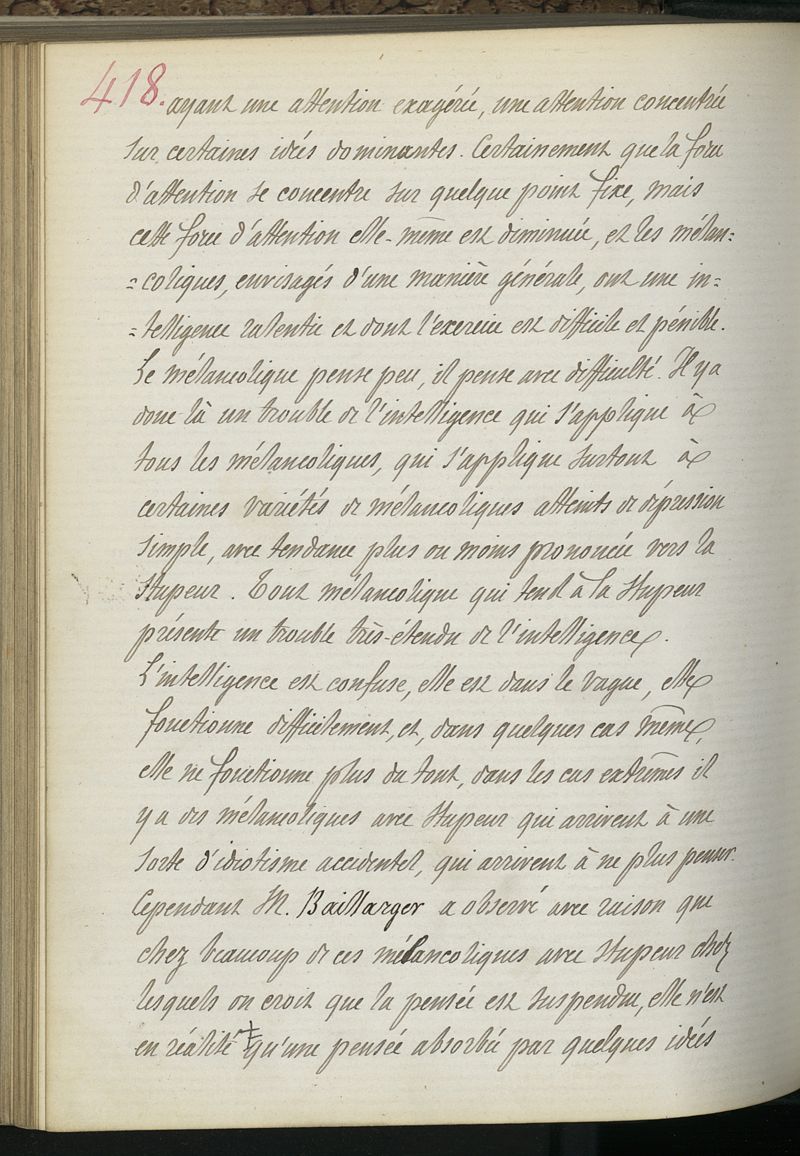 418. ayant une attention exagérée, une attention concentrée
sur certaines idées dominantes. Certainement que la force
d'attention se concentre sur quelque point fixe, mais
cette force d'attention elle-même est diminuée, et les mélan=
=coliques, envisagés d'une manière générale, ont une in=
=telligence ralentie et dont l'exercice est difficile et pénible.
Le mélancolique pense peu, il pense avec difficulté. Il y a
donc là un trouble de l'intelligence qui s'applique à
tous les mélancoliques, qui s'applique surtout à
certaines variétés de mélancoliques atteints de dépression
simple, avec tendance plus ou moins prononcée vers la
stupeur. Tout mélancolique qui tend à la stupeur
présente un trouble très-étendu de l'intelligence.
L'intelligence est confuse, elle est dans le vague, elle
fonctionne difficilement, et, dans quelques cas même,
elle ne fonctionne plus du tout, dans les cas extrêmes il
y a des mélancoliques avec stupeur qui arrivent à une
sorte d'idiotisme accidentel, qui arrivent à ne plus penser.
Cependant M. Baillarger a observé avec raison que
chez beaucoup de ces mélancoliques avec stupeur chez
lesquels on croit que la pensée est suspendue, elle n'est
en réalité qu'une pensée absorbée par quelques idées